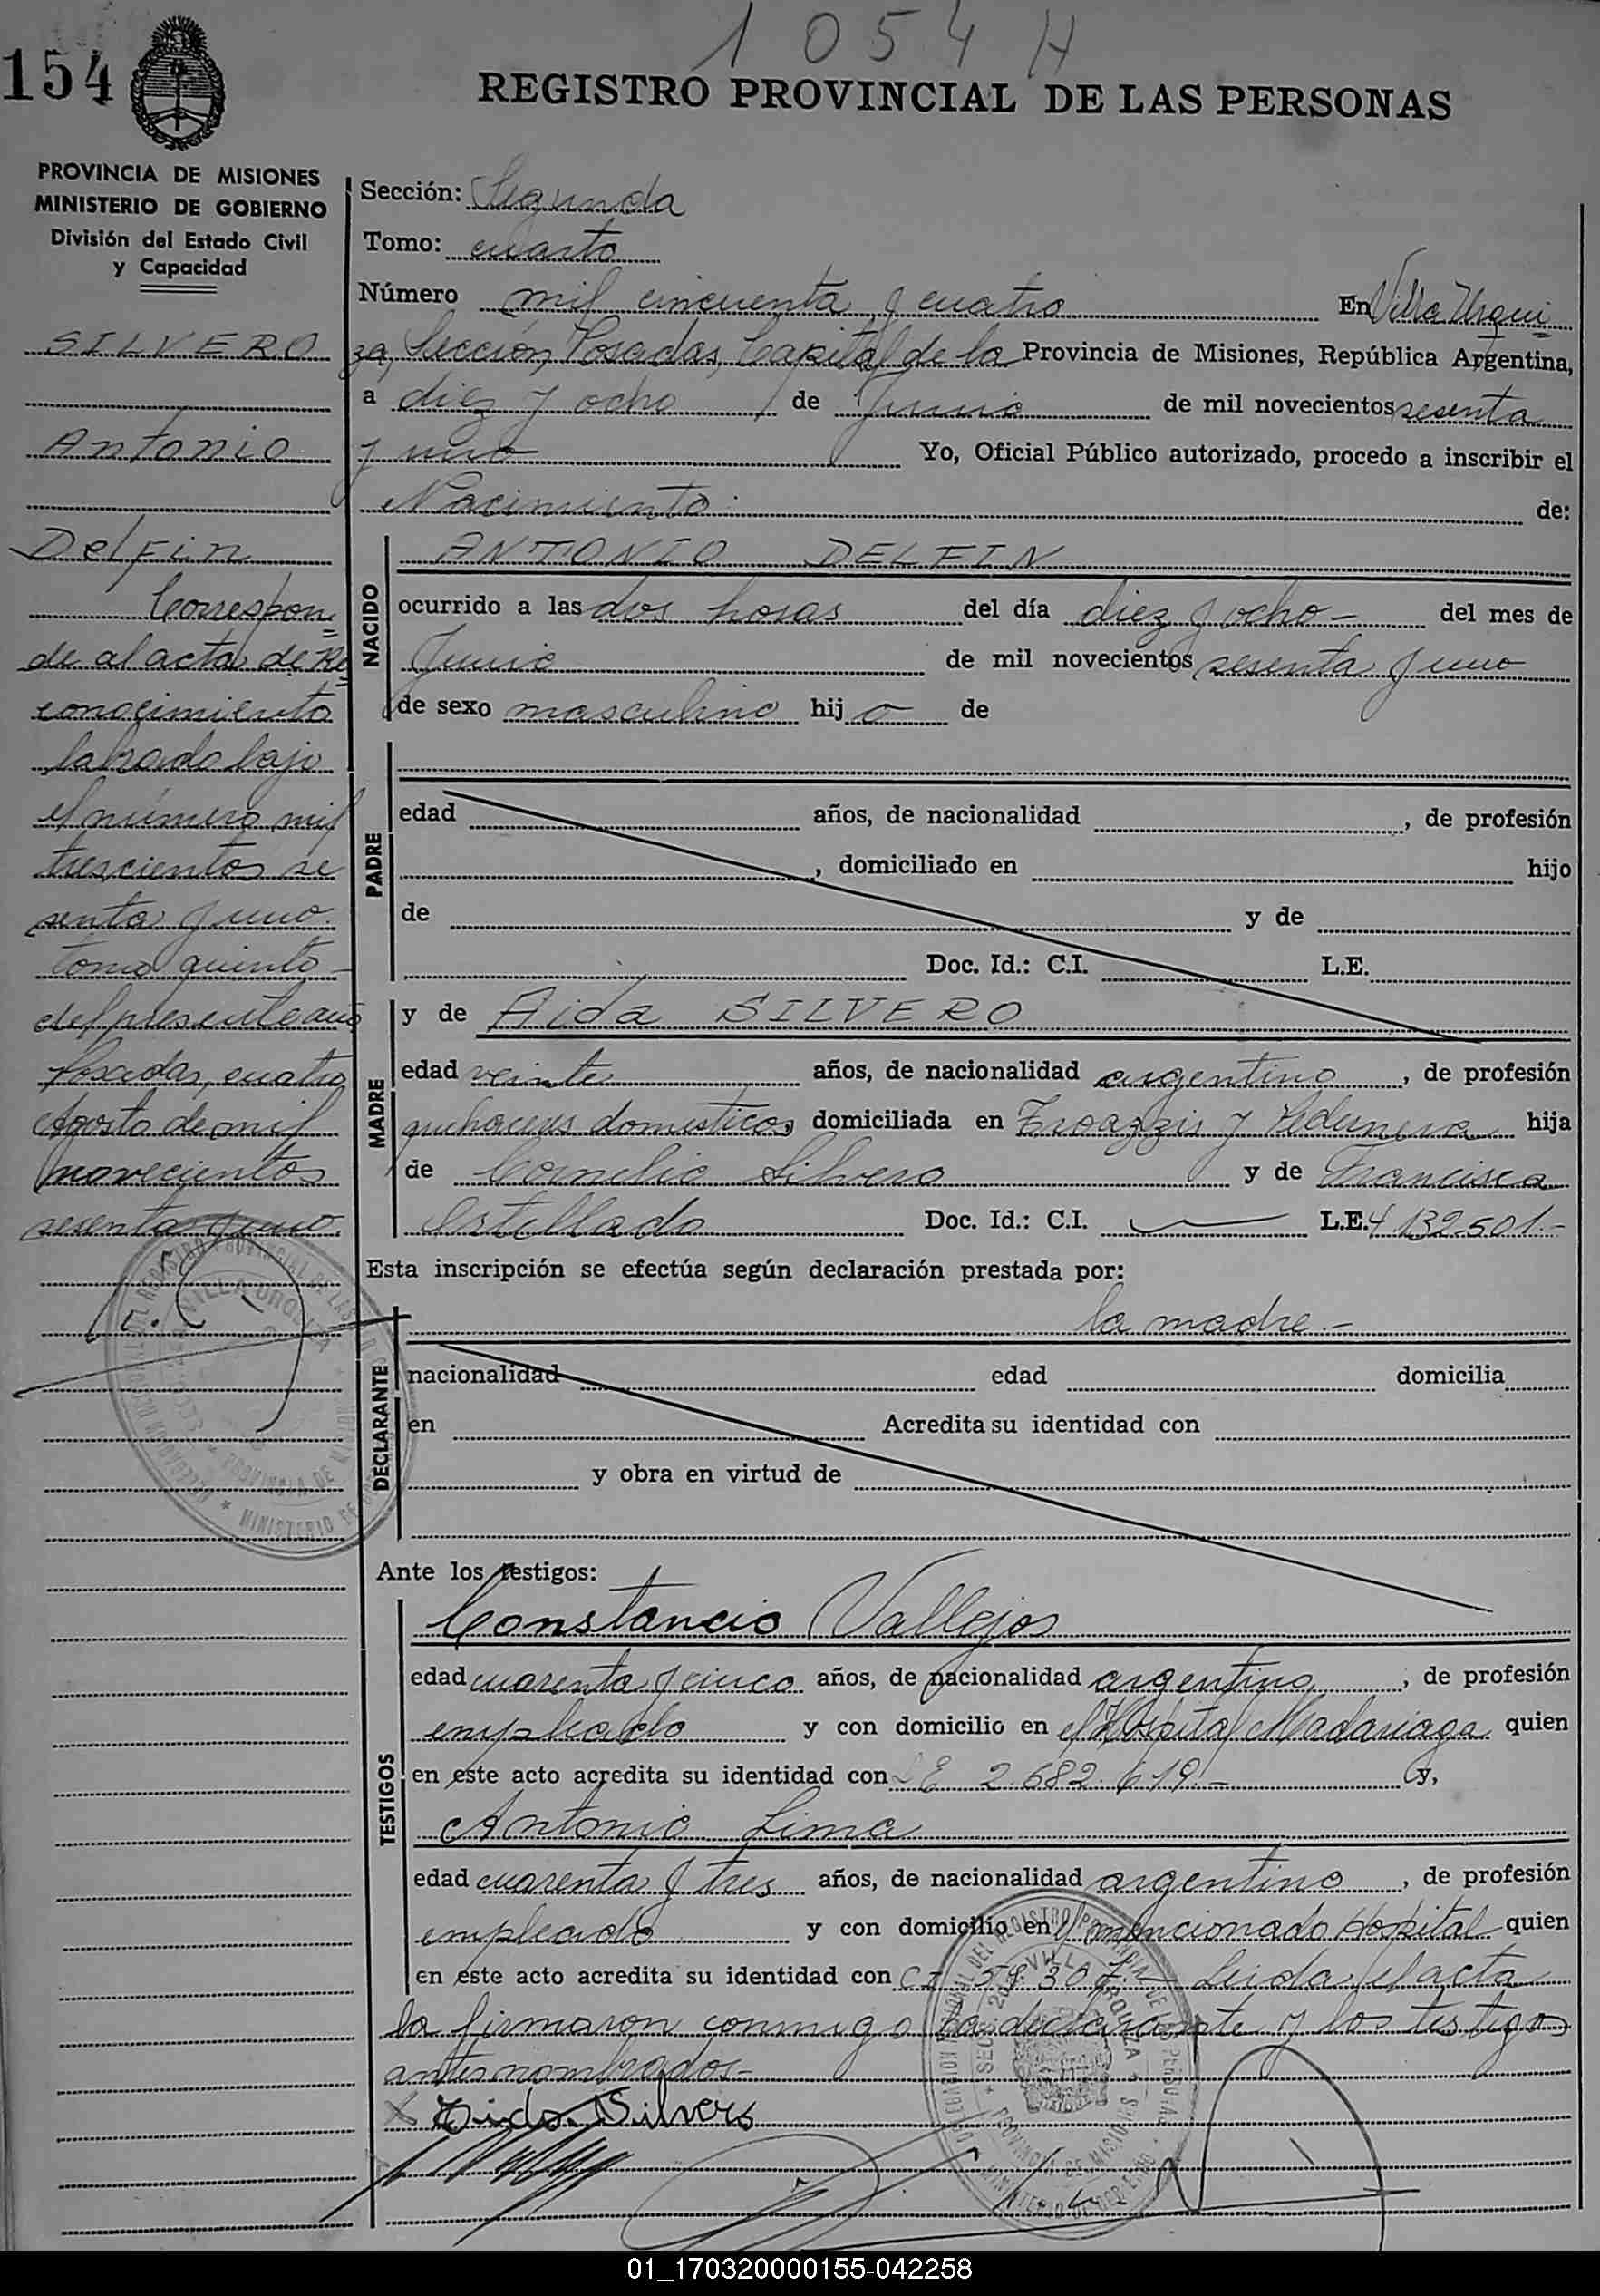 1054 H
154
REGISTRO PROVINCIAL DE LAS PERSONAS
PROVINCIA DE MISIONES
MINISTERIO DE GOBIERNO
División del Estado Civil
y Capacidad
SILVERO
Antonio
Delfin
Correspon=
de al acta de Re=
conocimiento
labrado bajo
el número mil
trescientos se
senta y uno
tomo quinto
del presente año
Posadas, cuatro
Agosto de mil
novecientos
sesenta y uno
Sección: Segunda
Tomo: cuarto
Número mil cincuenta y cuatro En Villa Urqui=
za, Sección Posadas, Capital de la Provincia de Misiones, República Argentina,
a diez y ocho de Junio de mil novecientos sesenta
y uno Yo, Oficial Público autorizado, procedo a inscribir el
Nacimiento de:
NACIDO
ANTONIO DELFIN
ocurrido a las dos horas del día diez y ocho - del mes de
Junio de mil novecientos sesenta y uno
de sexo masculino hijo de
PADRE
edad años, de nacionalidad , de profesión
, domiciliado en hijo
de y de
Doc. Id.: C.I. L.E.
MADRE
y de Aida SILVERO
edad veinte años, de nacionalidad argentina, de profesión
quehaceres domesticos domiciliada en y hija
de Cornelio Silvero y de Francisca
Doc. Id.: C.I. L.E. 4.132.501.-
Esta inscripción se efectúa según declaración prestada por:
DECLARANTE
la madre.-
nacionalidad edad domicilia
en Acredita su identidad con
y obra en virtud de
Ante los testigos:
TESTIGOS
Constancio Vallejos
edad cuarenta y cinco años, de nacionalidad argentino, de profesión
empleado y con domicilio en el Hospital Madariaga quien
en este acto acredita su identidad con LE 2.682.619.- y,
Antonio Lima
edad cuarenta y tres años, de nacionalidad argentino, de profesión
empleado y con domicilio en el mencionado Hospital quien
en este acto acredita su identidad con CI Leida el acta
la firmaron conmigo la declarante y los testigos
antes nombrados.-
X Aida Silvero
01_170320000155-042258